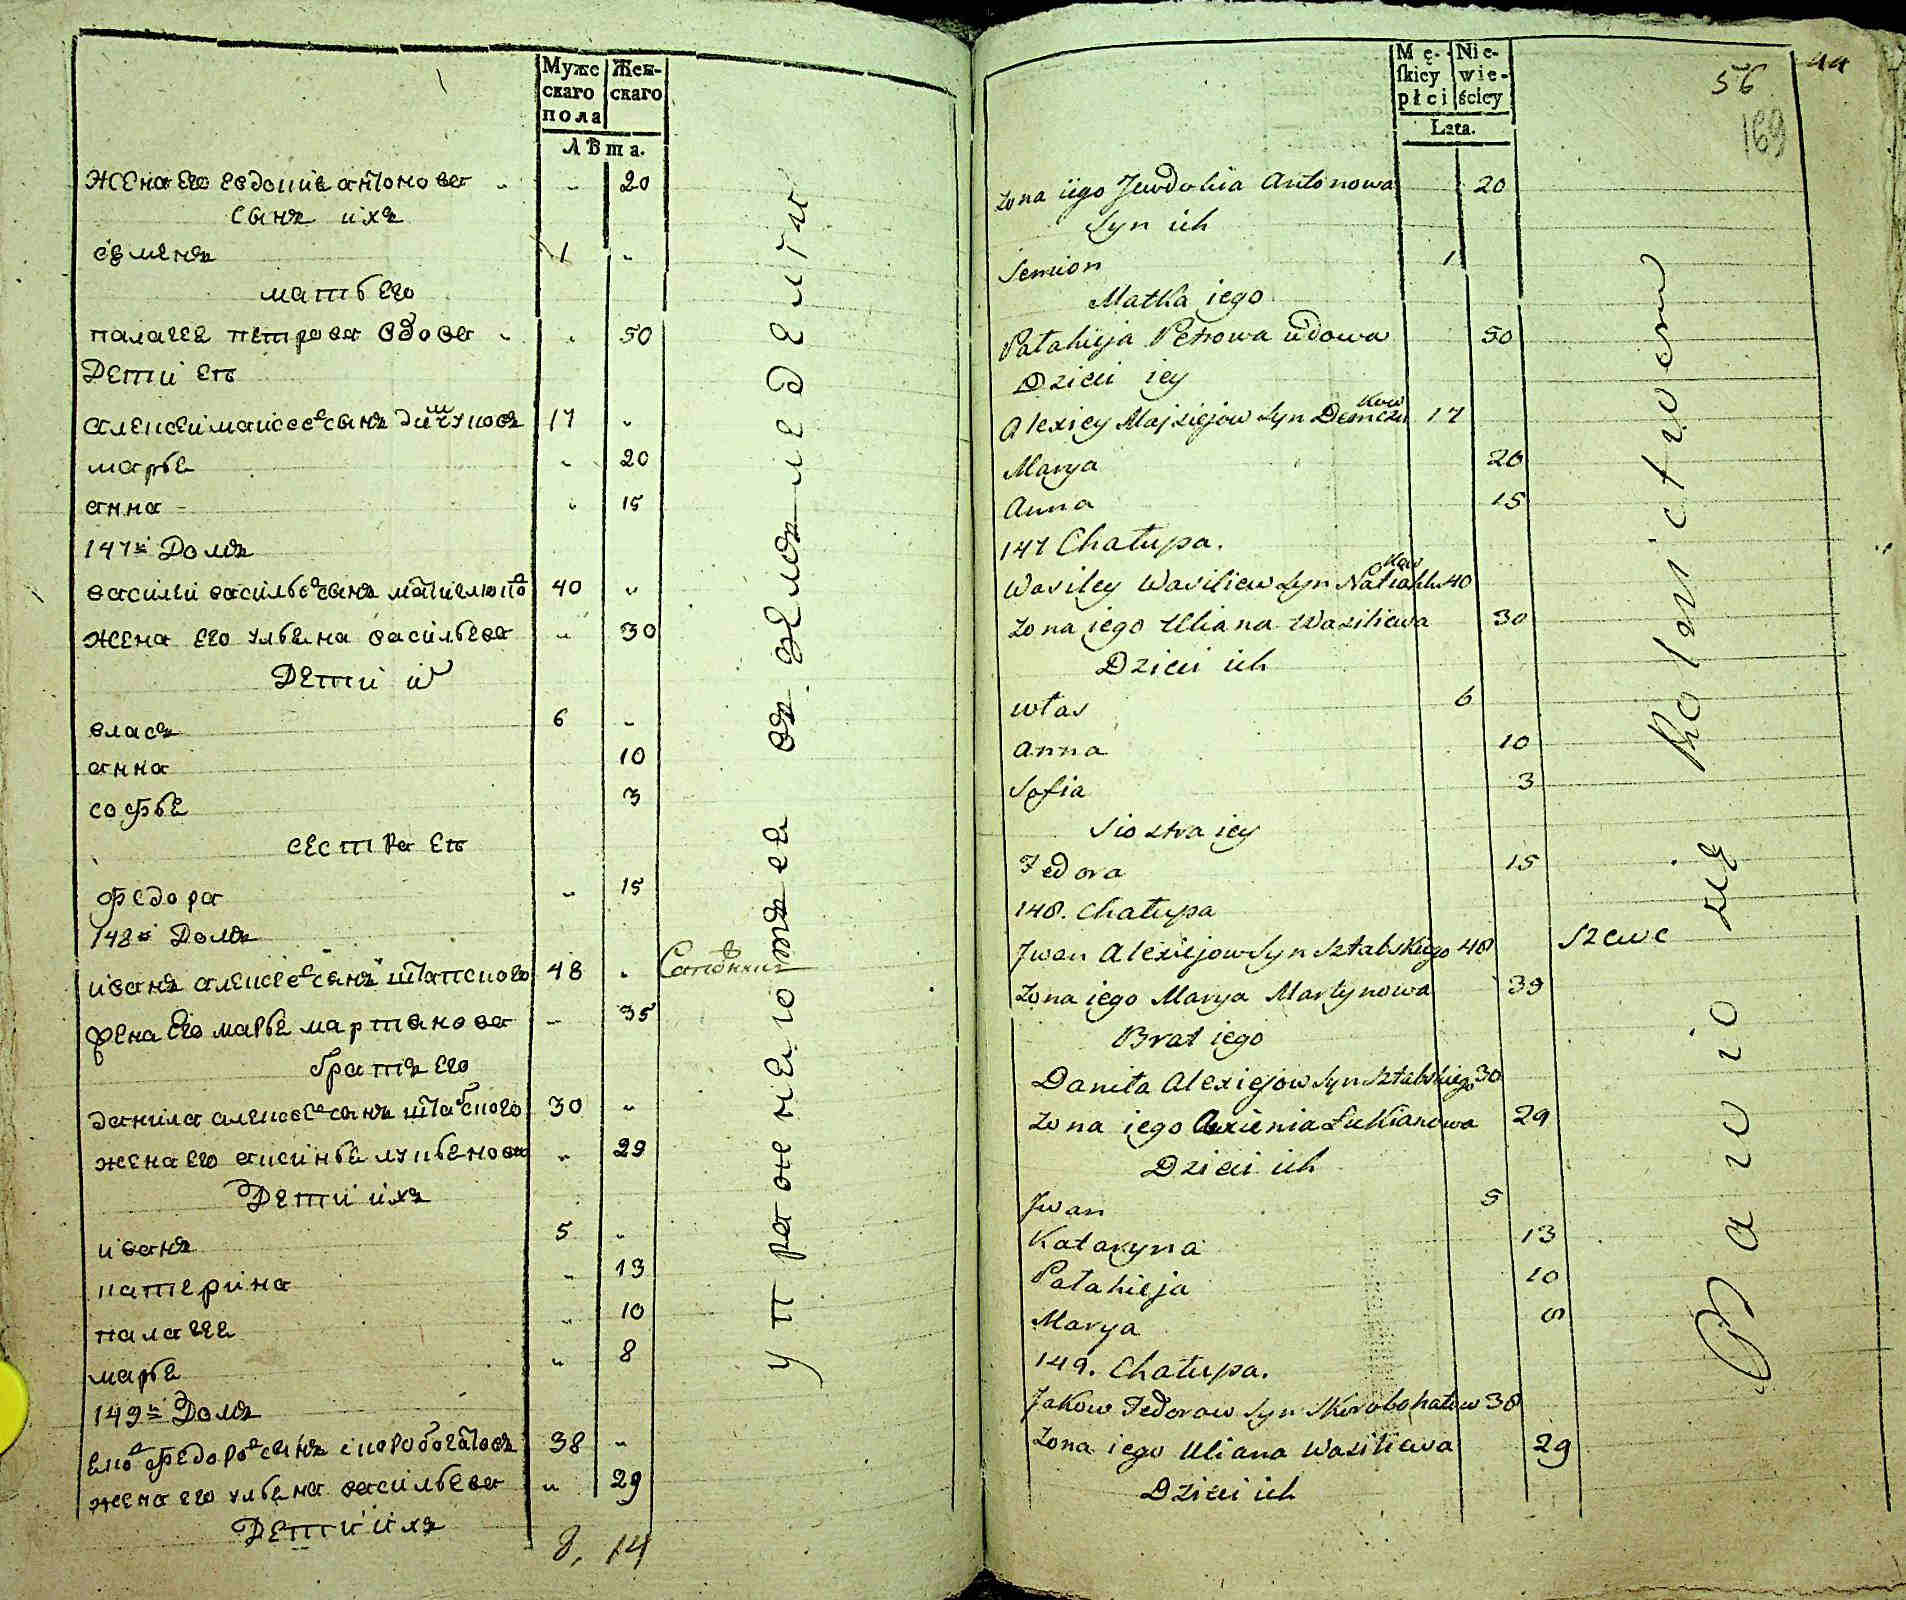 Муже
скаго
пола
Жен-
скаго
Лѣта.
жена его евдокиѣ антонова „ „ 20
сынъ ихъ
сѣменъ 1 „
мать его
палагея петрова вдова „ „ 50
Дети еѣ
алексеи маисеевъ сынъ 17 „
марья „ 20
анна - „ 15
147й Домъ
василеи васильевъ сынъ 40 „
жена его ульяна васильева „ 30
Дети их
власъ 6 „
анна 10
софья 3
сестра еѣ
федора „ 15
148й Домъ
иванъ алексеевъ сынъ штапского 48 „
жена его марья мартынова „ 35
братъ его
данила алексеевъ сынъ штабского 30 „
жена его аксинья лукьянова „ 29
Дети ихъ
иванъ 5 „
катерина „ 13
палагея „ 10
марья „ 8
149й Домъ
яковъ федоровъ сынъ скоробогатовъ 38 „
жена его ульяна васильева „ 29
Дети ихъ
8, 14
упражнеютъся въ земледелии
Mę-
skiey
płci
Nie-
wie-
ściey
Lata.
56
44
169
Żona iego Jewdokia Antonowa 20
Syn ich
Semion 1
Matka iego
Pałahieja Petrowa wdowa 50
Dzieci iey
Alexiey Majsiejow Syn Demczukow 17
Marya 20
Anna 15
147 Chałupa.
Wasiley Wasiliew Syn 40
Żona iego Uliana Wasiliewa 30
Dzieci ich
Włas 6
Anna 10
Sofia 3
Siostra iey
Fedora 15
148. Chałupa
Jwan Alexiejow Syn Sztabskiego 48 Szewc
Żona iego Marya Martynowa 39
Brat iego
Daniła Alexiejow Syn Sztabskiego 30
Żona iego Axienia Łukianowa 29
Dzieci ich
Jwan 5
Kataryna 13
Pałahieja 10
Marya 8
149. Chałupa.
Jakow Fedorow Syn Skorobohatow 38
Żona iego Uliana Wasiliewa 29
Dzieci ich
Bawio się Rolnictwem